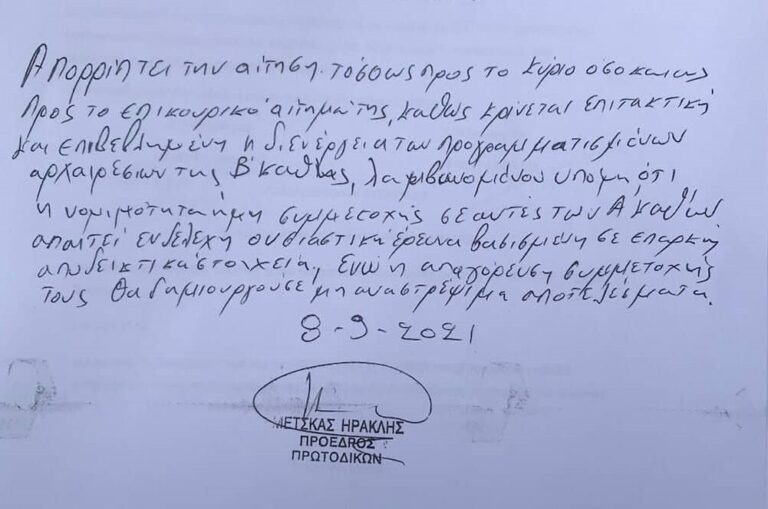 Απορρίπτει την αίτηση τόσο ως προς το κύριο όσο και ως
προς το επικουρικό αίτημά της, καθώς κρίνεται επιτακτική
και επιβεβλημένη η διενέργεια των προγραμματισμένων
αρχαιρεσιών της Β' καθ'ης, λαμβανομένου υπόψη ότι
η νομιμότητα ή μη συμμετοχής σε αυτές των Α' καθ'ων
απαιτεί ενδελεχή ουσιαστική έρευνα βασισμένη σε επαρκή
αποδεικτικά στοιχεία, ενώ η απαγόρευση συμμετοχής
τους θα δημιουργούσε μη αναστρέψιμα αποτελέσματα.
8-9-2021
ΜΕΤΣΚΑΣ ΗΡΑΚΛΗΣ
ΠΡΟΕΔΡΟΣ
ΠΡΩΤΟΔΙΚΩΝ